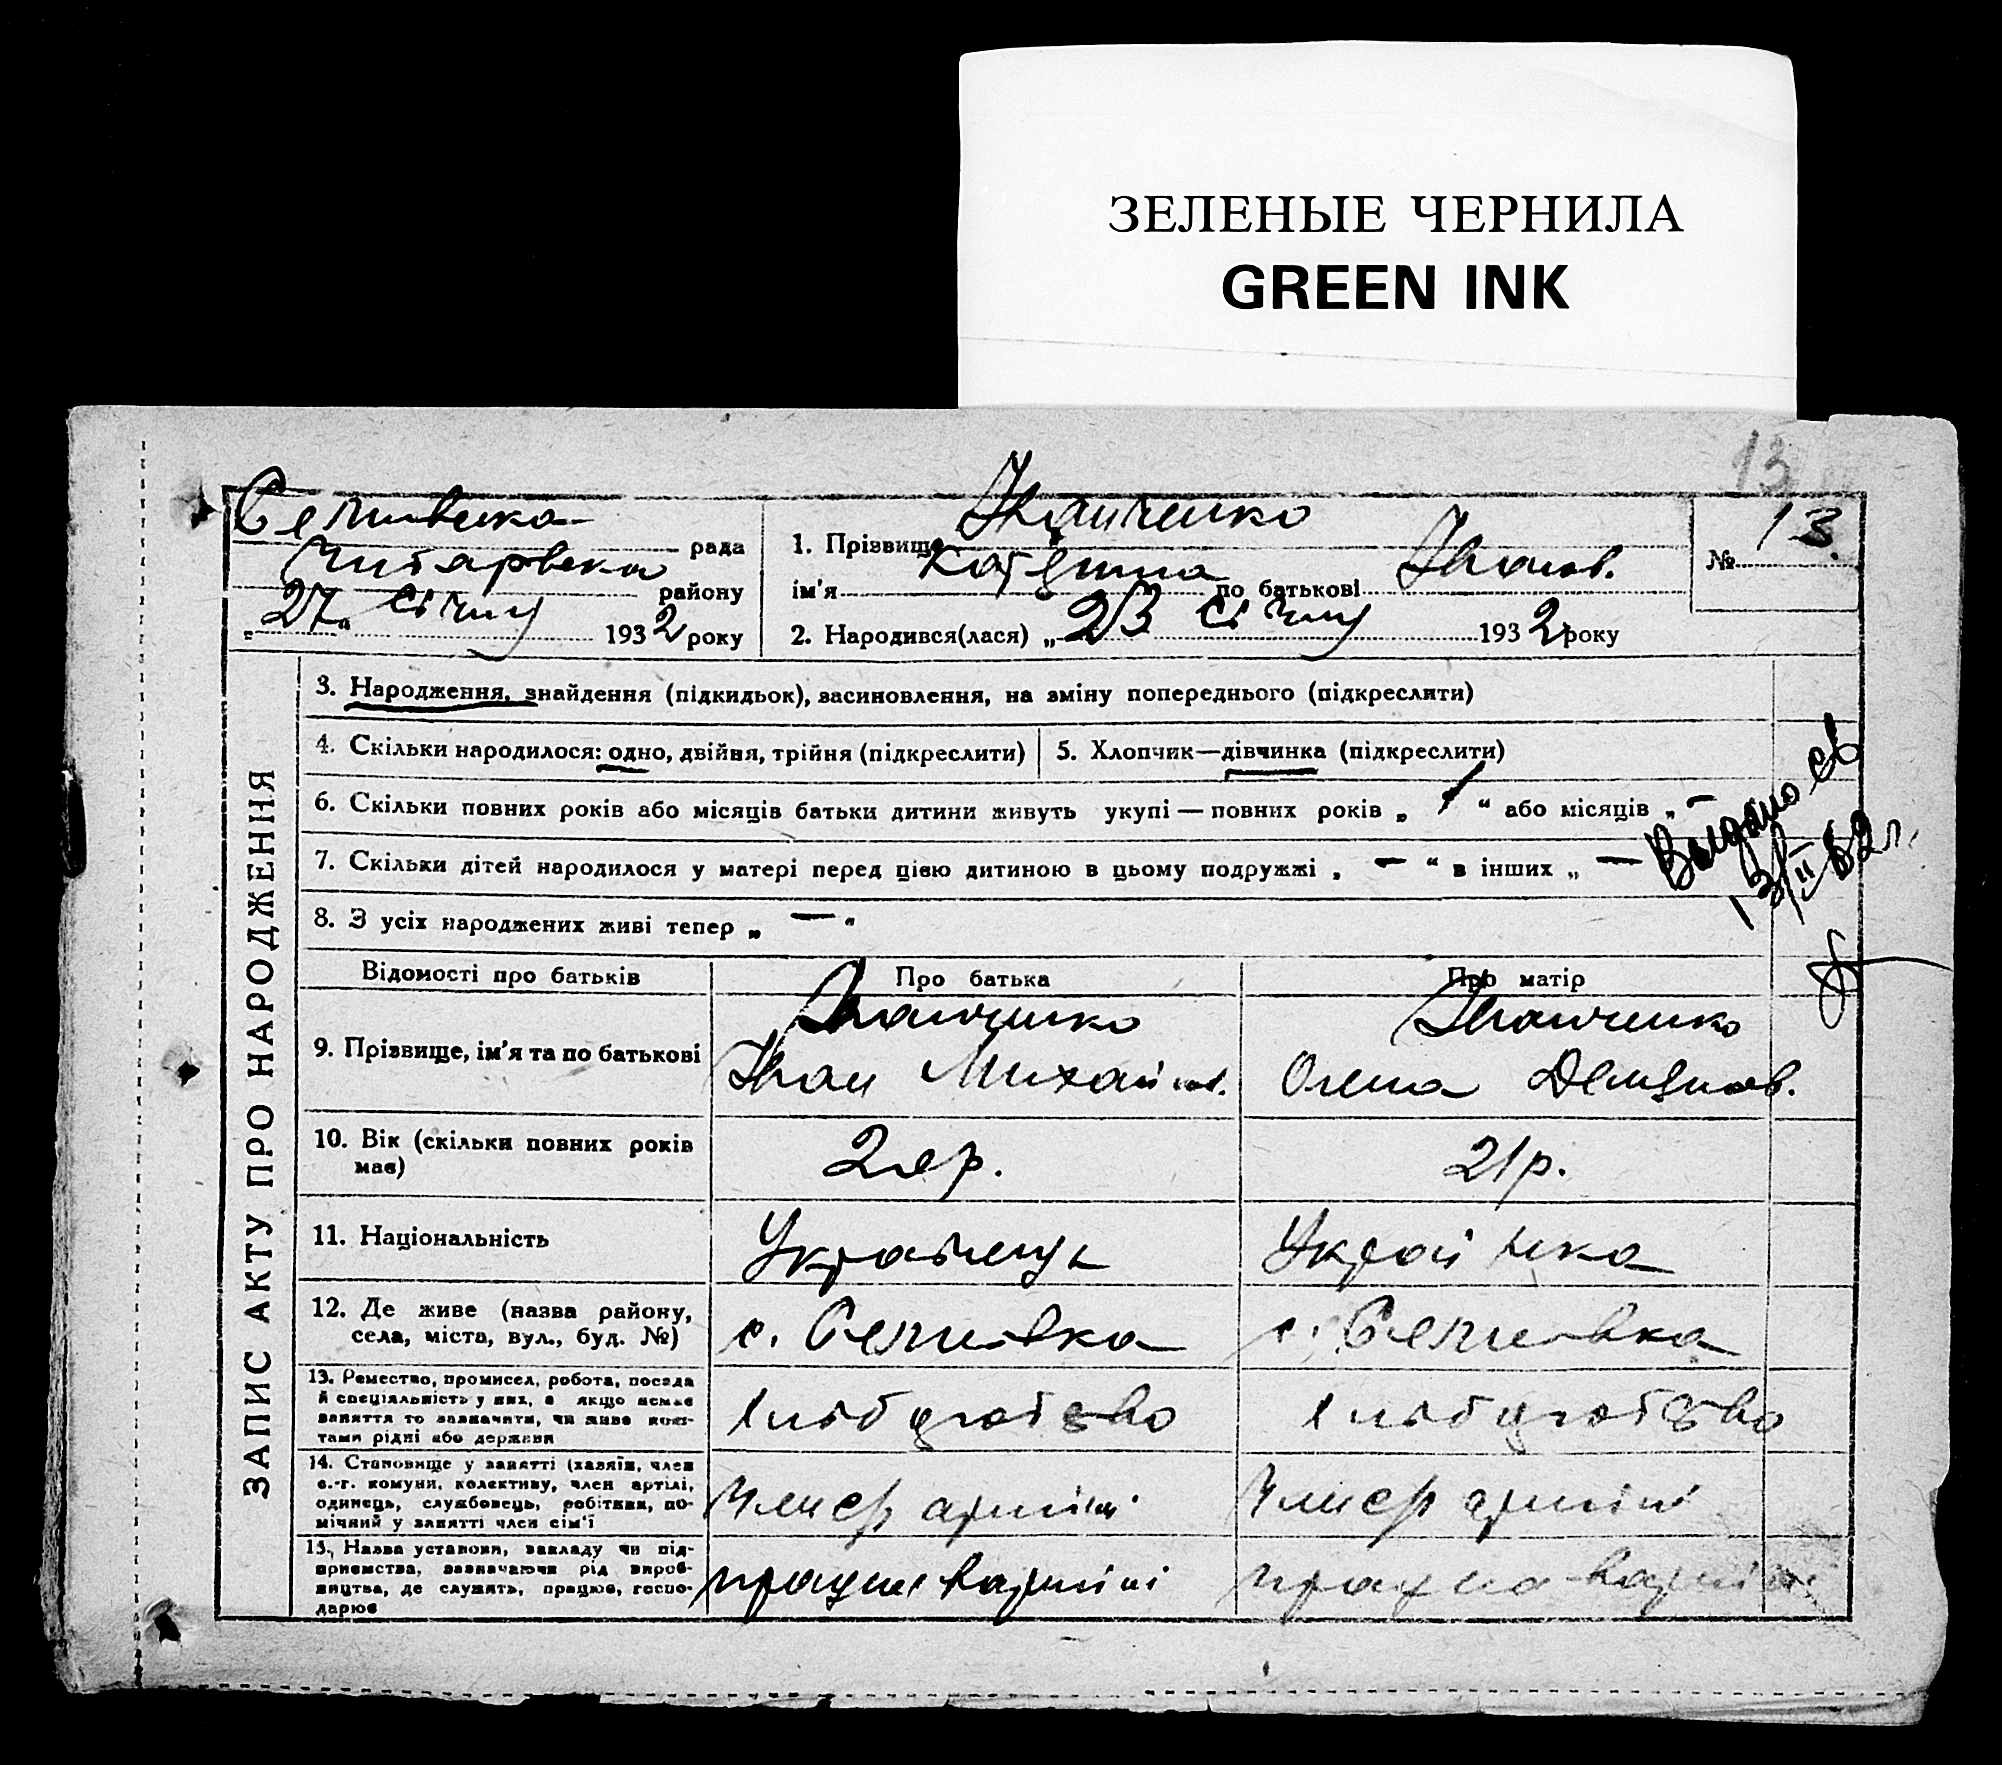 ЗЕЛЕНЫЕ ЧЕРНИЛА
GREEN INK
13
рада
району
„27“ січня 1932 року
1. Прізвище Іванченко
ім'я Катерина по батькові Іванов.
2. Народився(лася) „23 січня 1932 року
№ 13.
ЗАПИС АКТУ ПРО НАРОДЖЕННЯ
3. Народження, знайдення (підкидьок), засиновлення, на зміну попереднього (підкреслити)
4. Скільки народилося: одно, двійня, трійня (підкреслити)
5. Хлопчик—дівчинка (підкреслити)
6. Скільки повних років або місяців батьки дитини живуть укупі — повних років „ 1 “ або місяців „ —
7. Скільки дітей народилося у матері перед цією дитиною в цьому подружжі „ — “ в інших „ —
8. З усіх народжених живі тепер „ — “
Выдано св
13/II 62 г.
Відомості про батьків
Про батька
Про матір
9. Прізвище, ім'я та по батькові
Іванченко
Іван Михайлов.
Іванченко
Олена Демянов.
10. Вік (скільки повних років
має)
р.
21 р.
11. Національність
Українець
Українка
12. Де живе (назва району,
села, міста, вул., буд. №)
с.
с.
13. Ремество, промисел, робота, посада
й спеціяльність у них, а якщо немає
заняття то зазначити, чи живе кош-
тами рідні або держави
хліборобство
хліборобство
14. Становище у занятті (хазяїн, член
с.-г. комуни, колективу, член артілі,
одинець, службовець, робітник, по-
мічний у занятті член сім'ї
артілі
артілі
15. Назва установи, закладу чи під-
приємства, зазначаючи рід вироб-
ництва, де служить, працює, госпо-
дарює
працює в артілі
працює в артілі